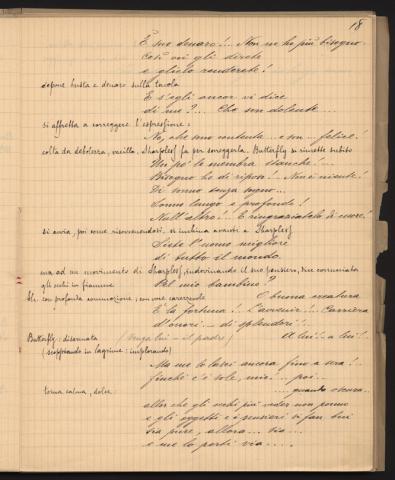 18
È suo denaro!... Non ne ho più bisogno.
Così voi gli direte
e glielo renderete!
depone busta e denaro sulla tavola
E s'egli ancor vi dice
di me?... Che son dolente...
si affretta a correggere l'espressione:
No, che sono contenta... e son... felice!
colta da debolezza, vacilla. Sharpless fa per sorreggerla. Butterfly si rimette subito
Un po' le membra stanche!...
Bisogno ho di riposo!... Non è niente!
Di sonno senza sogno...
Sonno lungo e profondo!
Null'altro!... E ringraziatelo di cuore!
si avvia, poi come risovvenendosi, si inchina avanti a Sharpless
Siete l'uomo migliore
di tutto il mondo.
ma ad un movimento di Sharpless, indovinando il suo pensiero,
gli occhi in fiamme
Pel mio bambino?
Sh. con profonda commozione; con voce carezzevole
O buona creatura
È la fortuna! L'avvenir!.. Carriera
D'onori... di splendori!...
Butterfly: disarmata
(lunga lui – il padre)
A lui!.. a lui!..
(scoppiando in lagrime: implorando)
Ma me lo lasci ancora fino a sera!...
finchè c'è sole, mio!... poi...
torna calma, dolce
.... quando oscura..
allor che gli occhi più veder non ponno
e gli oggetti e i pensieri si fan bui
sia pure, allora... via...
e me lo porti via....